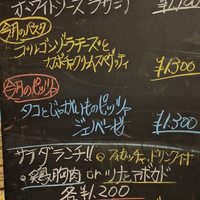 ホワイトソースラザニア
¥1,100
今月のパスタ
ゴルゴンゾラチーズと
カボチャクリームスパゲッティ
¥1,300
今月のピッツァ
タコとじゃがいものピッツァ
ジェノベーゼ
¥1,300
サラダランチ!! フォカッチャ、ドリンク付
鶏胸肉 or ツナとアボカド
各¥1,200